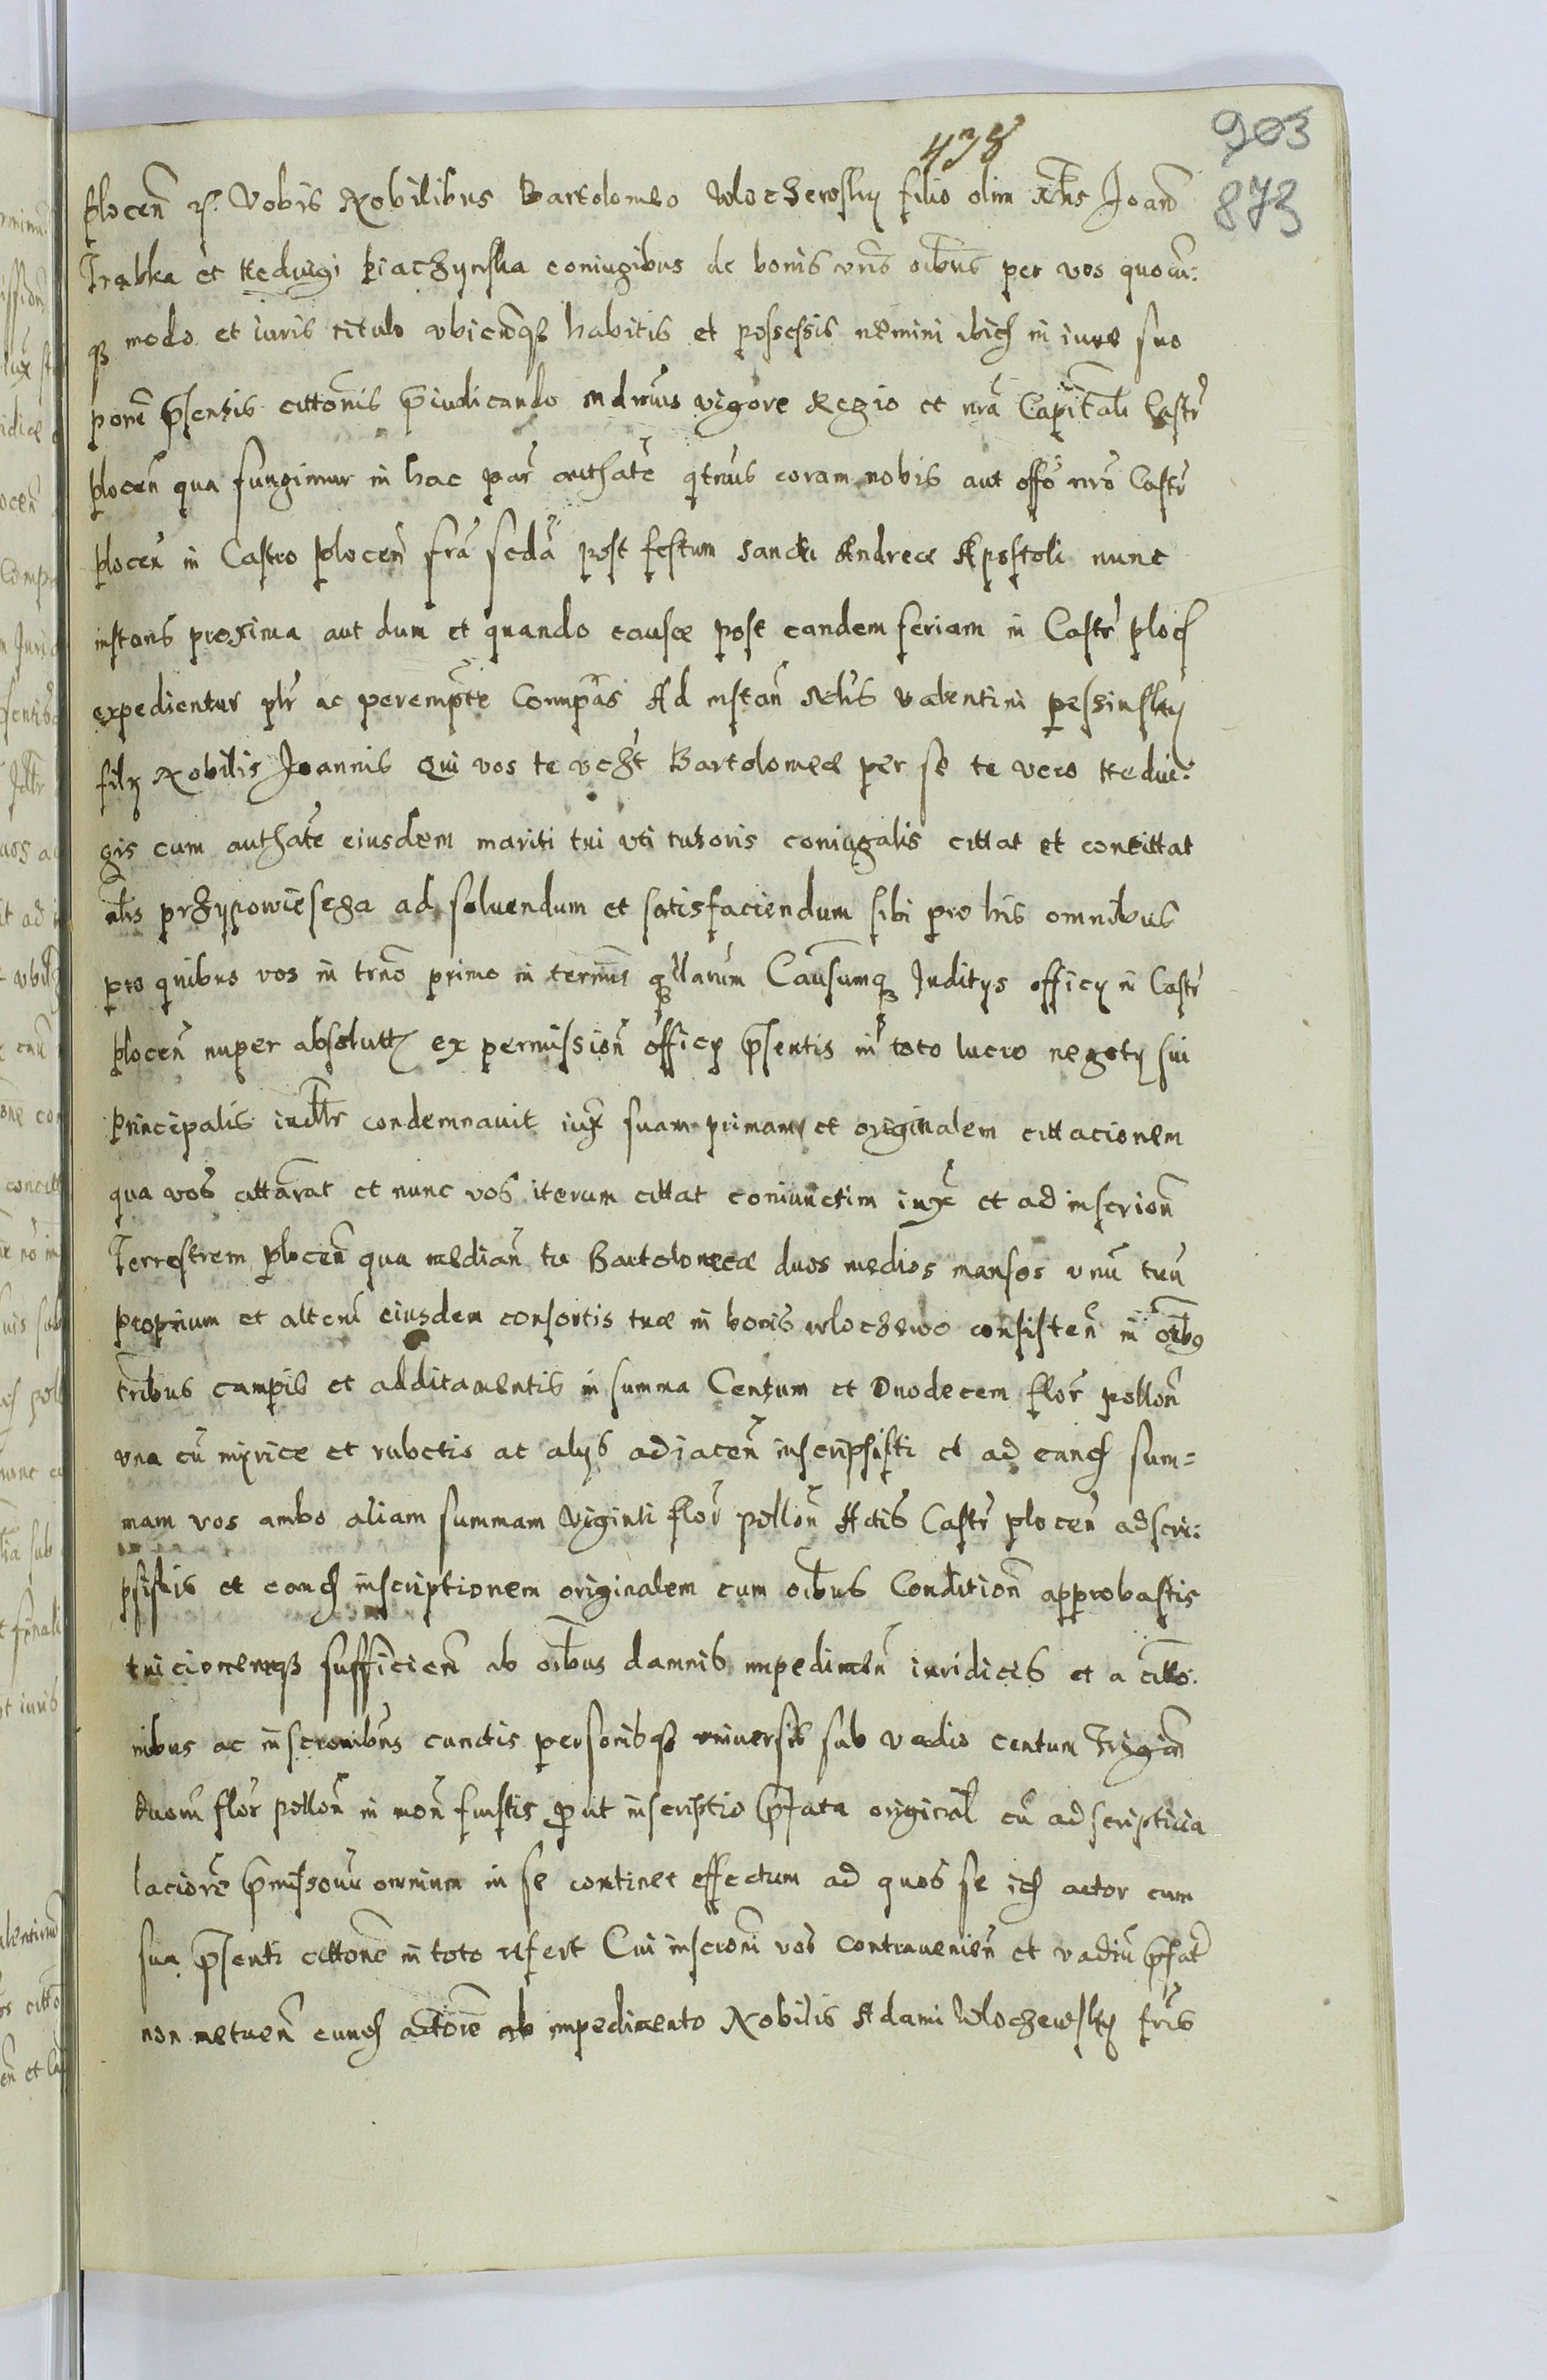 438
903
873
plocen̄ etc. Vobis Nobilibus Bartolomeo Wloczewsky filio olim Nbl̄is Joan̄
Trabka et Hedvigi Piaczynska coniugibus de bonis vrīs oībus per vos quocu͂:
q3 modo et iuris titulo vbicūq3 habitis et possessis nemini ibid in iure suo
pōnem p̄sentis cittōnis p̄iudicando mdmus vigore Regio et nrā Capitāli Castr̄
plocen̄ qua fungimur in hac par̄ authāte qtnus coram nobis aut offō nrō Castr̄
plocen̄ in Castro plocen̄ frā secdā post festum sancti Andreæ Apostoli nunc
instans proxima aut dum et quando causæ post eandem feriam in Castr̄ ploc
expedientur pltr ac perempt̄e Compās Ad instan̄ Nblis Valentini pessinsky
filij Nobilis Joannis Qui vos te vczt̄ Bartolomeæ per se te vero Hedui:
gis cum authāte eiusdem mariti tui vti tutoris coniugalis cittat et concittat
al̄s przypowiescza ad soluendum et satisfaciendum sibi pro his omnibus
pro quibus vos in trnō primo in termis q̄rlarum Causarumq3 Juditys officy in Castr̄
plocen̄ nuper absolutt ex permission̄ officy p̄sentis in toto lucro negoty sui
principalis iudltr condemnauit iux̄ suam primam et originalem cittacionem
qua vos cittārat et nunc vos iterum cittat coniunctim iux̄ et ad inscrion̄
Terrestrem plocen̄ qua median̄ tu Bartolomeæ duos medios mansos vnū tuū
proprium et alterū eiusdem consortis tuæ in bonis wloczewo consisten̄ in oībq
tribus campis et additamentis in summa Centum et Duodecem flor̄ pollon̄
vna cū myrice et rubetis ac alys adiacen̄ inscripsisti et ad eand sum=
mam vos ambo aliam summam Viginti flor̄ pollon̄ Actis Castr̄ plocen̄ adscri:
psistis et eand inscriptionem originalem cum oībus Condition̄ approbastis
tuicionemq3 sufficien̄ ab oībus damnis impedimen̄ iuridicis et a citto:
nibus ac inscronibus cunctis personibq3 vniuersis sub vadio centum Trigin̄
duorū flor̄ pollon̄ in mon̄ fuistis p̄ut inscriptio p̄fata original̄ cū adscripticia
laciorē p̄missorū omnium in se continet effectum ad quos se id actor cum
sua p̄senti cittōne in toto refert Cui inscrōni vos contrauenien̄ et vadiū p̄fat̄
non metuen̄ eund actōre ab impedimento Nobilis Adami Wloczewsky fris